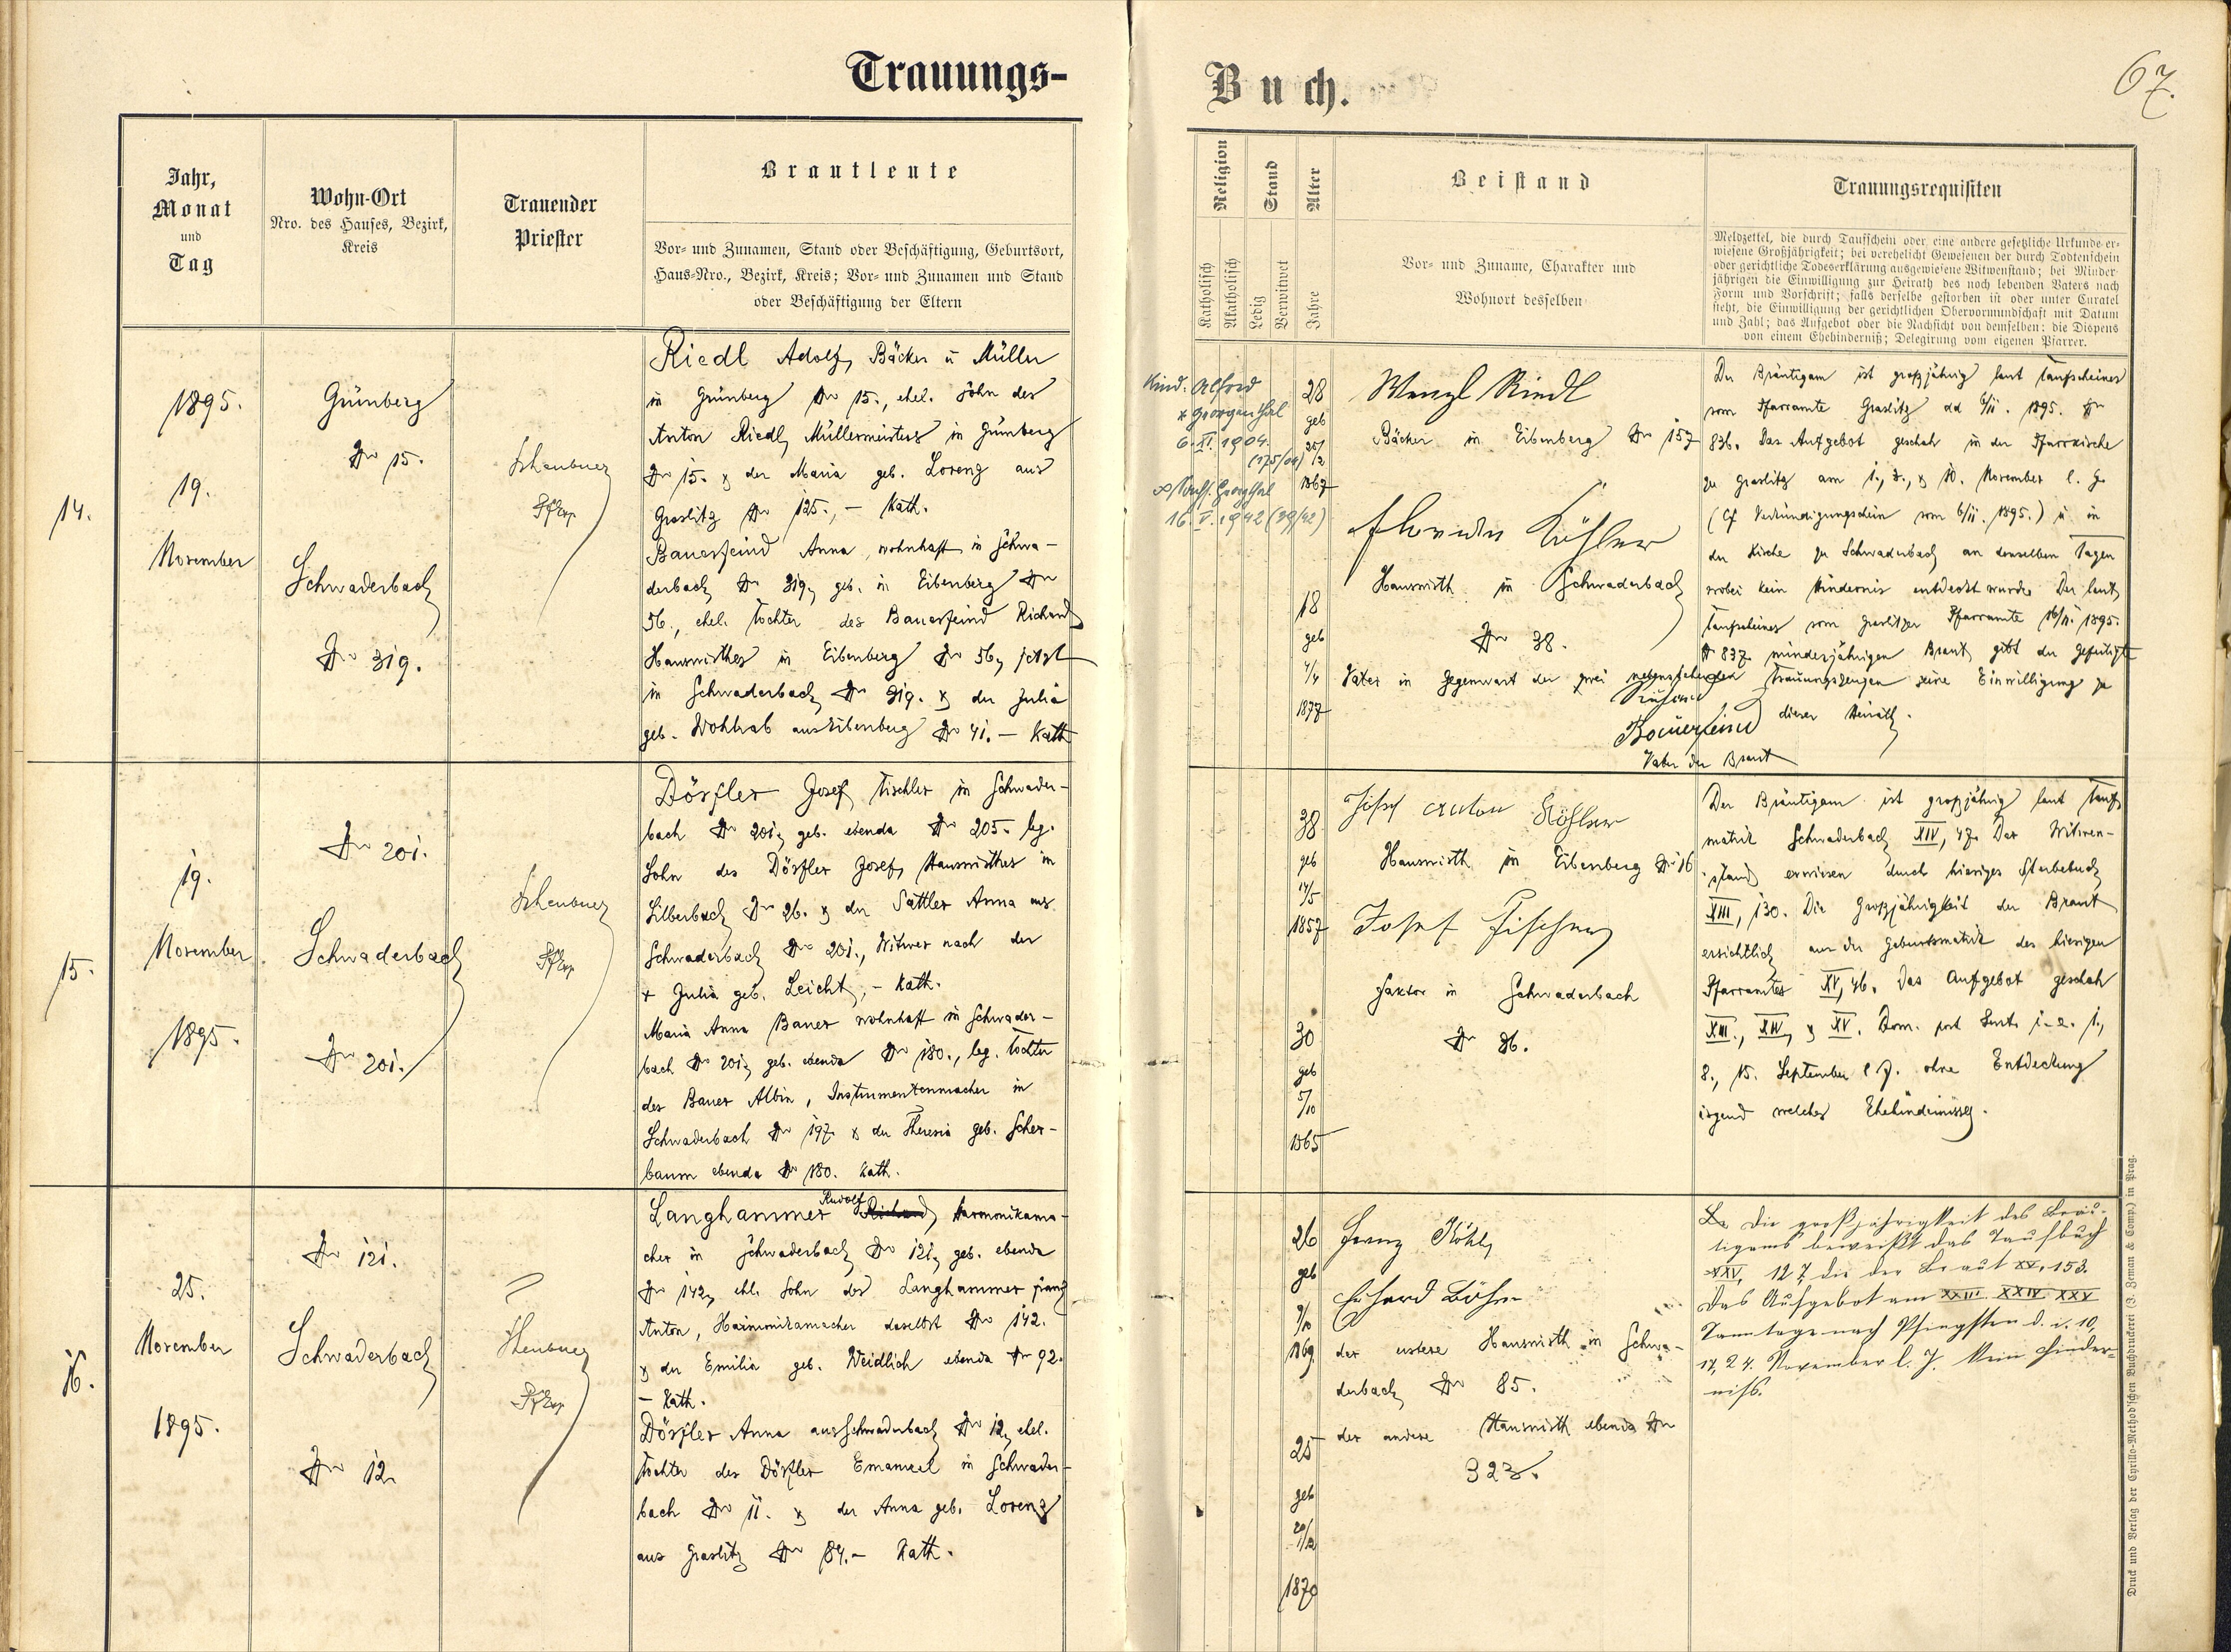 Trauungs-
Jahr,
Monat
und
Tag
Wohn-Ort
Nro. des Hauses, Bezirk,
Kreis
Trauender
Priester
Brautleute
Vor- und Zunamen, Stand oder Beschäftigung, Geburtsort,
Haus-Nro., Bezirk, Kreis; Vor- und Zunamen und Stand
oder Beschäftigung der Eltern
14.
1895.
19.
November
Grünberg
No 15.
Schwaderbach
No 319.
Pfarr
Riedl Adolf, Bäcker u Müller
in Grünberg No 15., ehel. Sohn des
Anton Riedl, Müllermeisters in Grünberg
No 15. & der Maria geb. Lorenz aus
Graslitz No 125., – Kath.
Bauerfeind Anna, wohnhaft in Schwa-
derbach No 319, geb. in Eibenberg No
56., ehel. Tochter des Bauerfeind Richard
Hauswirthes in Eibenberg No 56, jetzt
in Schwaderbach No 319. & der Julia
geb. Wohlrab aus Eibenberg No 41. – Kath
15.
19.
November
1895.
No 201.
Schwaderbach
No 201.
Pfarr
Dörfler Josef, Tischler in Schwader-
bach No 201, geb. ebenda No 205. leg.
Sohn des Dörfler Josef, Hauswirthes in
Silberbach No 26. & der Sattler Anna aus
Schwaderbach No 201., Witwer nach der
+ Julia geb. Leicht, – Kath.
Maria Anna Bauer wohnhaft in Schwader-
bach No 201, geb. ebenda No 180., leg. Tochter
des Bauer Albin, Instrumentenmacher in
Schwaderbach No 197 & der Theresia geb. Scher-
baum ebenda No 180. Kath.
16.
25.
November
1895.
No 121.
Schwaderbach
No 12
Pfarr
Langhammer Rudolf Richard, Harmonikama-
cher in Schwaderbach No 121, geb. ebenda
No 142, ehl. Sohn des Langhammer Franz
Anton, Harmonikamacher daselbst No 142.
& der Emilia geb. Weidlich ebenda No 92.
– Kath.
Dörfler Anna aus Schwaderbach No 12, ehel.
Tochter des Dörfler Emanuel in Schwader-
bach No 11. & der Anna geb. Lorenz
aus Graslitz No 84. – Kath.
Buch.
67.
Religion
Stand
Alter
Katholisch
Akatholisch
Ledig
Verwitwet
Jahre
Beistand
Vor- und Zuname, Charakter und
Wohnort desselben
Trauungsrequisiten
Meldzettel, die durch Taufschein oder eine andere gesetzliche Urkunde er-
wiesene Großjährigkeit; bei verehelicht Gewesenen der durch Todtenschein
oder gerichtliche Todeserklärung ausgewiesene Witwenstand; bei Minder-
jährigen die Einwilligung zur Heirath des noch lebenden Vaters nach
Form und Vorschrift; falls derselbe gestorben ist oder unter Curatel
steht, die Einwilligung der gerichtlichen Obervormundschaft mit Datum
und Zahl; das Aufgebot oder die Nachsicht von demselben; die Dispens
von einem Ehehinderniß; Delegirung vom eigenen Pfarrer.
Kind. Alfred
* Georgenthal
6. XI. 1904.
(175/04)
16. V. 1942 (29/42)
28
geb
1867
18
geb
4/4
1877
Wenzl Riedl
Bäcker in Eibenberg No 157
Köhler
Hauswirth in Schwaderbach
No 38.
Der Bräutigam ist großjährig laut Taufscheines
vom Pfarramte Graslitz dd 6/11. 1895. No
836. Das Aufgebot geschah in der Pfarrkirche
zu Graslitz am 1., 3., & 10. November l. J.
(Cf Verkündigungschein vom 6/11. 1895.) u in
der Kirche zu Schwaderbach an denselben Tagen
wobei kein Hindernis entdeckt wurde. Der laut
Taufscheines vom Graslitzer Pfarramte 16/11. 1895.
No 837. minderjährigen Braut gibt der gefertigte
Vater in Gegenwart der zwei nebenstehenden Trauungszeugen seine Einwilligung zu
dieser Heirath.
Bauerfeind
Vater der Braut
38
geb
14/5
1857
30
geb
5/10
1865
Josef Anton Köhler
Hauswirth in Eibenberg No 16
Josef Fischer
Faktor in Schwaderbach
No 86.
Der Bräutigam ist großjährig laut Tauf-
matrik Schwaderbach XIV, 47. Der Witwen-
stand erwiesen durch hieriges Sterbebuch
XIII, 130. Die Großjährigkeit der Braut
ersichtlich aus der Geburtsmatrik des hierigen
Pfarramtes XV, 46. Das Aufgebot geschah
XIII., XIV, & XV. Dom. post Pent. i. e. 1.,
8., 15. September l J. ohne Entdeckung
irgend welches Ehehindernisses.
26
geb
9/10
1869.
25
geb
20/12
1870
Franz Köhl
Böhm
der erstere Hauswirth in Schwa-
derbach No 85.
der andere Hauswirth ebenda No
323.
Die großjährigkeit des Bräu-
tigams beweißt das Taufbuch
XXV, 127, die der Braut XV, 153.
Das Aufgebot am XXIII XXIV XXV
Sonntage nach Pfingsten d. i. 10,
17, 24. November l. J. Kein Hinder-
niß.
Druck und Verlag der Cyrillo-Method'schen Buchdruckerei (J. Zeman & Comp.) in Prag.